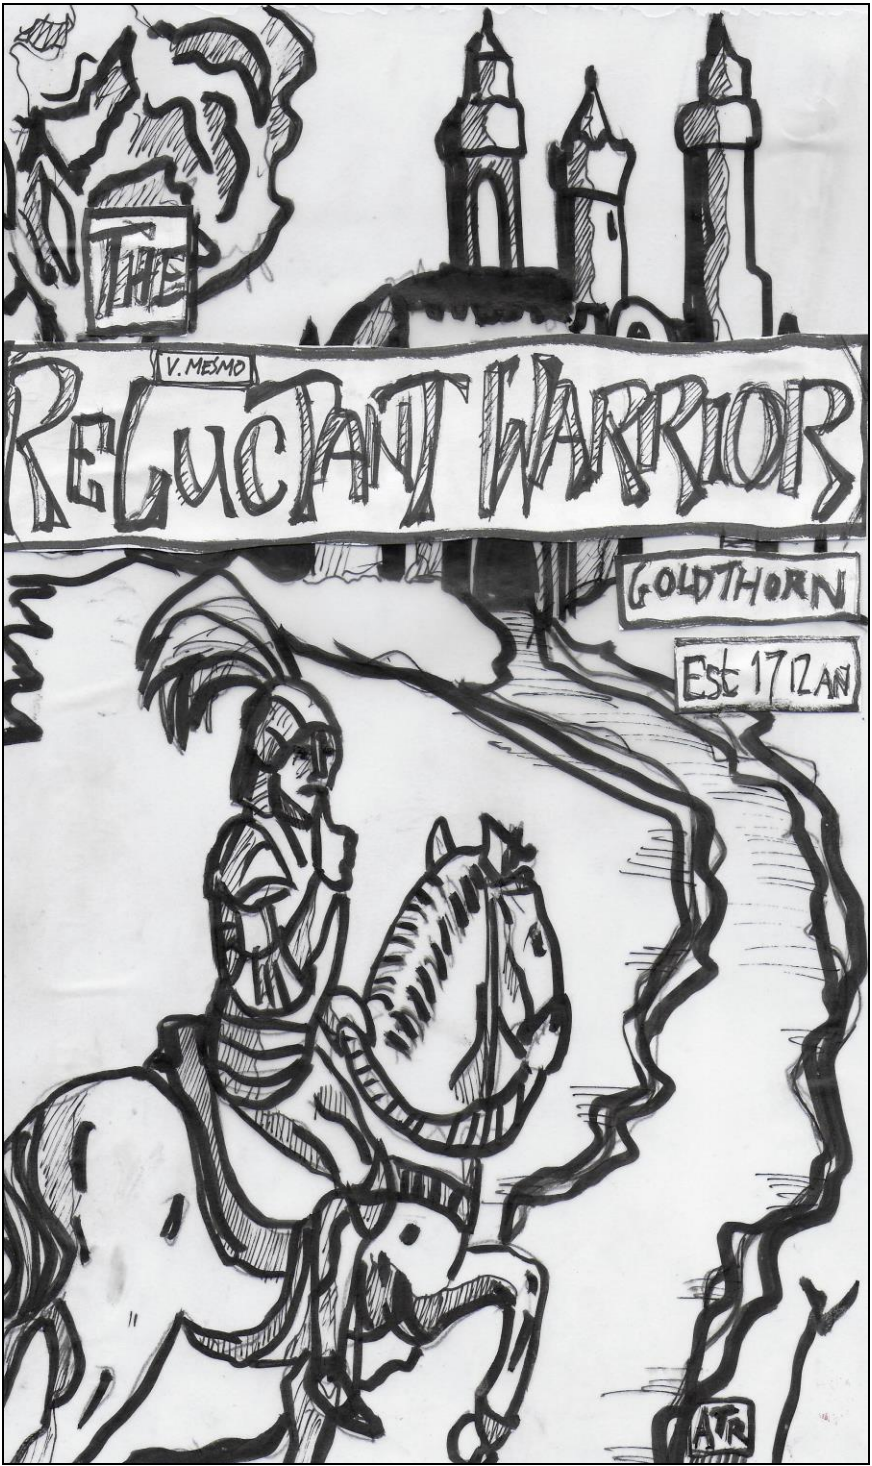 THE
V. MESMO
RELUCTANT WARRIOR
GOLDTHORN
Est 1712 AN
ATR